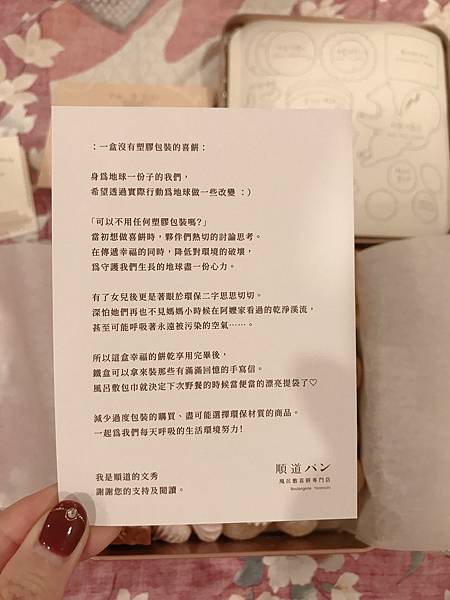 ：一盒沒有塑膠包裝的喜餅：
身爲地球一份子的我們，
希望透過實際行動爲地球做一些改變 ：)
「可以不用任何塑膠包裝嗎？」
當初想做喜餅時，夥伴們熱切的討論思考。
在傳遞幸福的同時，降低對環境的破壞，
爲守護我們生長的地球盡一份心力。
有了女兒後更是著眼於環保二字思思切切。
深怕她們再也不見媽媽小時候在阿嬤家看過的乾淨溪流，
甚至可能呼吸著永遠被污染的空氣……。
所以這盒幸福的餅乾享用完畢後，
鐵盒可以拿來裝那些有滿滿回憶的手寫信。
風呂敷包巾就決定下次野餐的時候當便當的漂亮提袋了♡
減少過度包裝的購買、盡可能選擇環保材質的商品。
一起爲我們每天呼吸的生活環境努力！
我是順道的文秀
謝謝您的支持及閱讀。
順道パン
風呂敷喜餅專門店